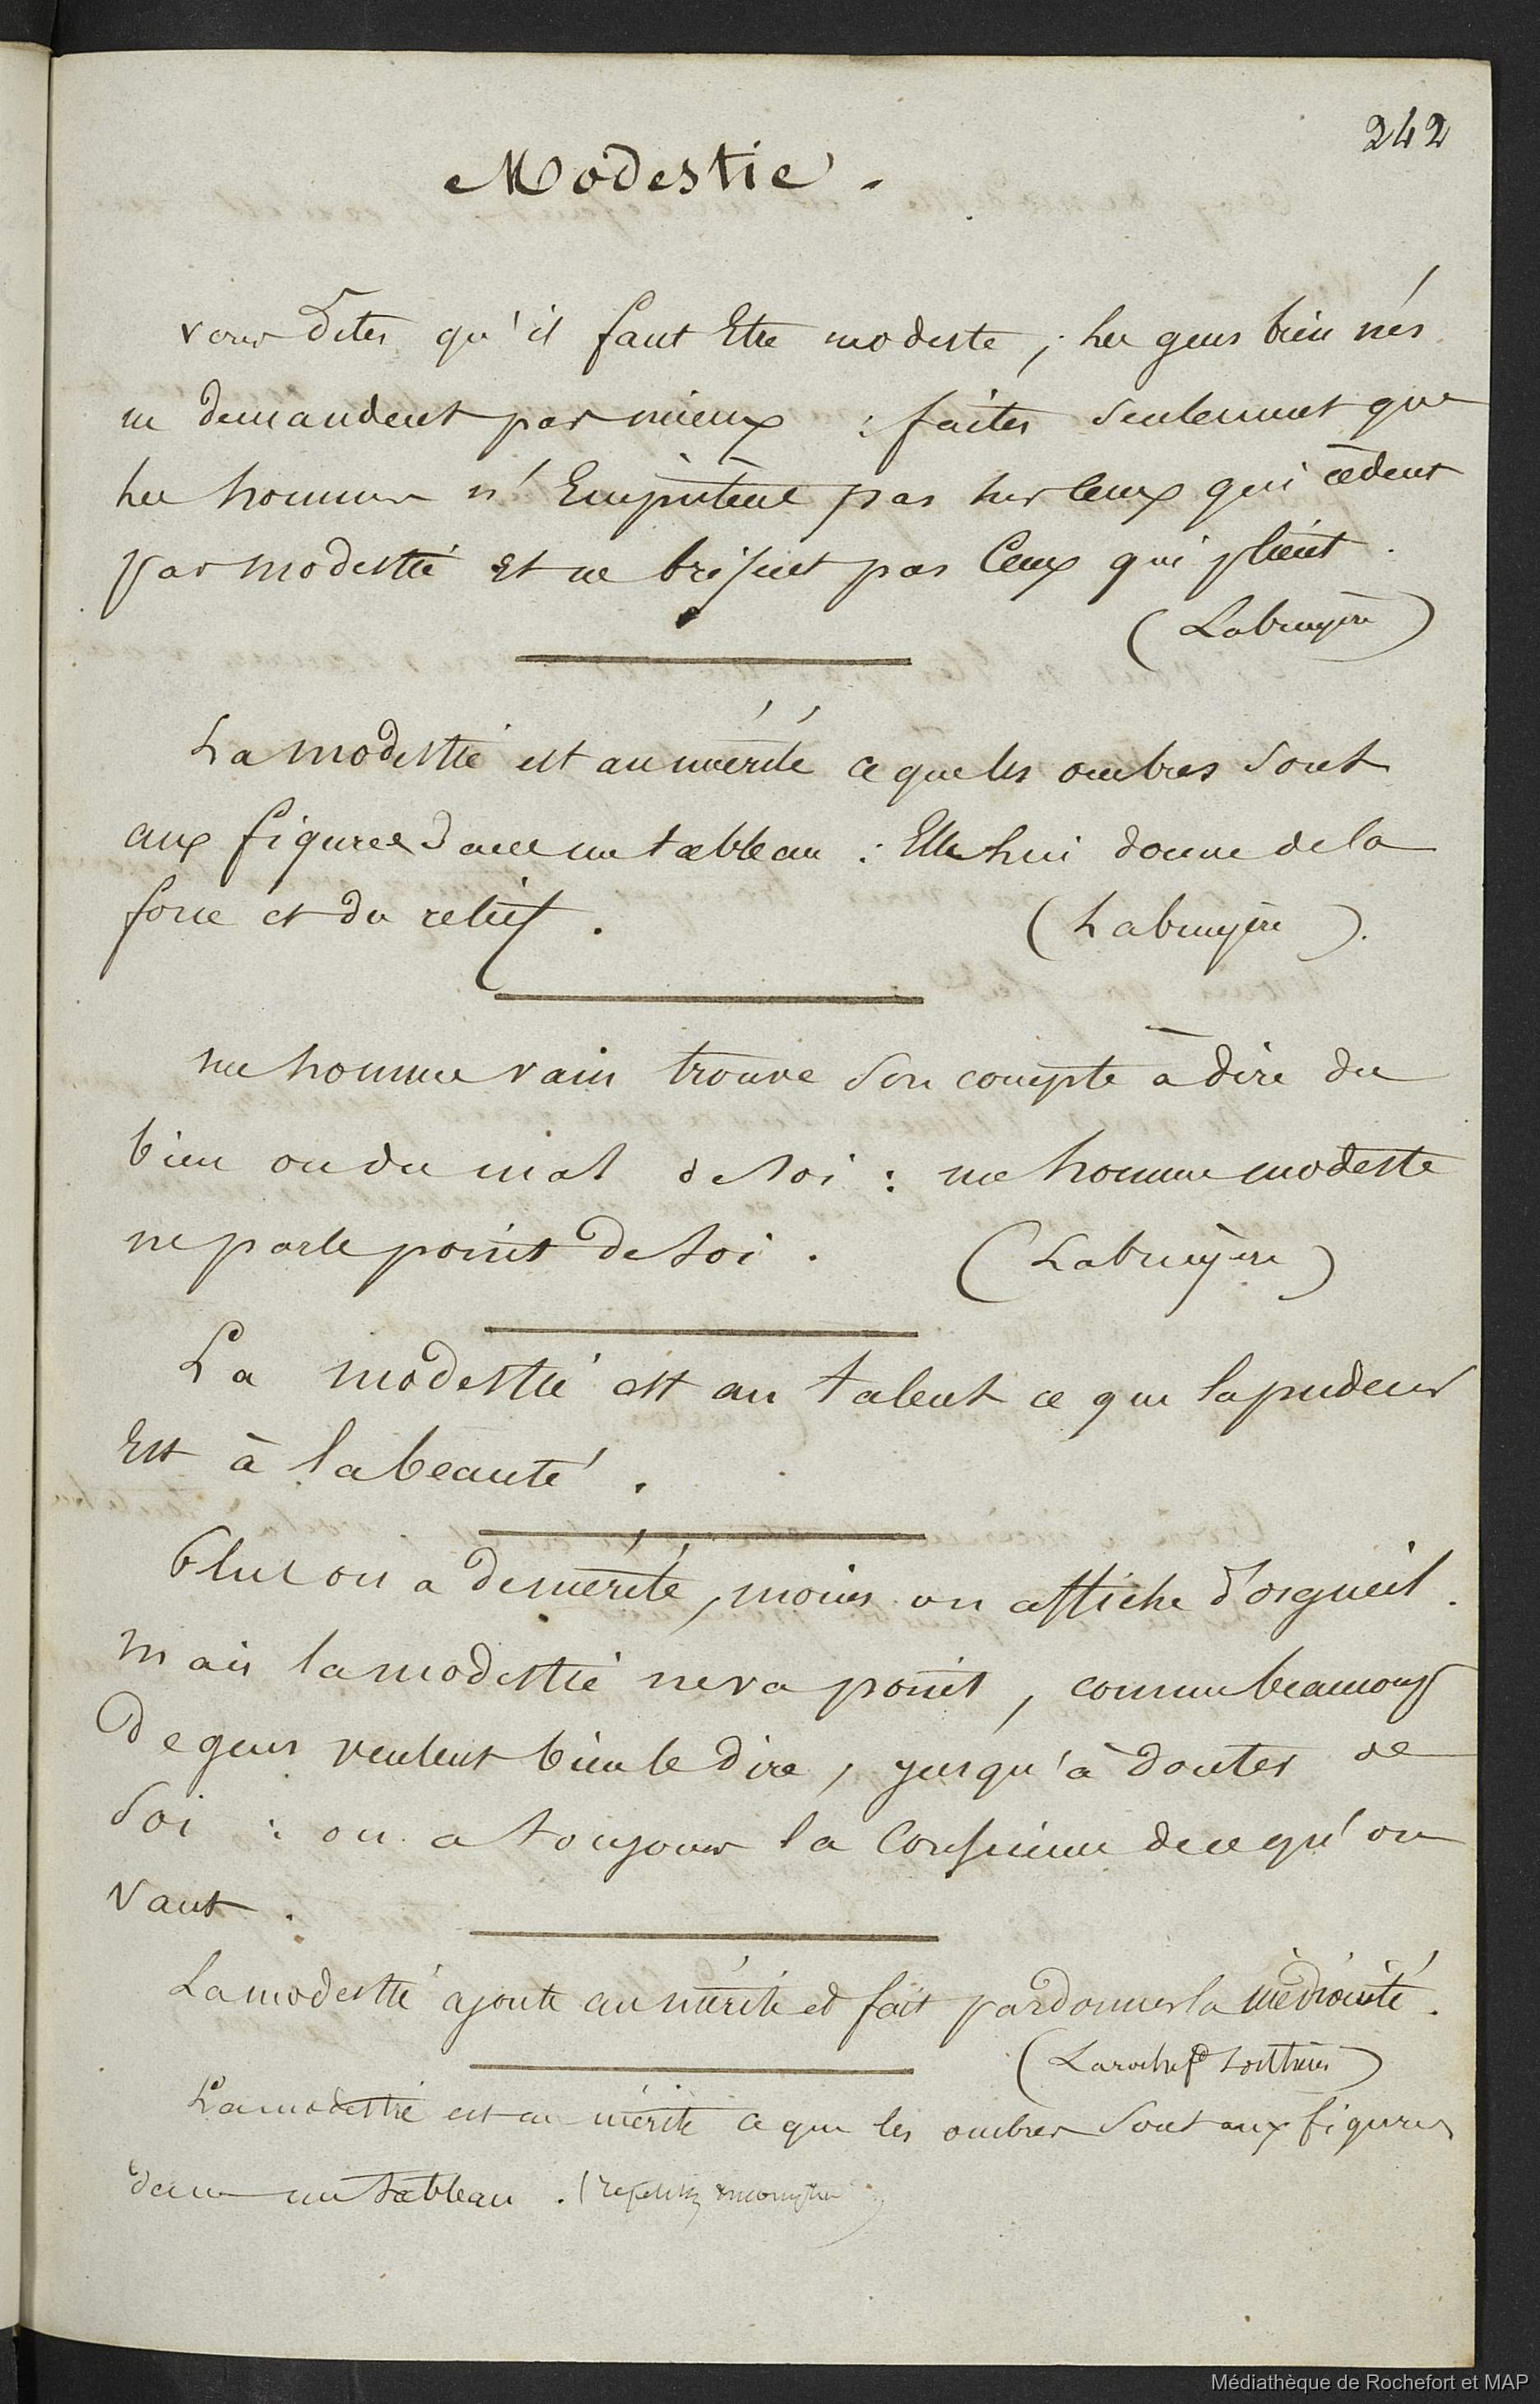 242
Modestie.
vous dites qu'il faut Etre modeste ; les gens bien nés
ne demandent pas mieux : faites seulement que
les hommes n'Empiètent pas sur ceux qui cèdent
par modestie et ne brisent pas Ceux qui plient.
(Labruyère)
La modestie est au mérite ce que les ombres sont
aux figures dans un tableau : Elle lui donne de la
force et du relief. (Labruyère).
un homme vain trouve son compte à dire du
bien ou du mal de soi : un homme modeste
ne parle point de soi. (Labruyère)
La modestie est au talent ce que la pudeur
Est à la beauté.
Plus on a de mérite, moins on affiche d'orgueil.
mais la modestie ne va point, comme beaucoup
De gens veulent bien le dire, jusqu'à douter de
soi : on a toujours la Conscience de ce qu'on
vaut.
La modestie ajoute au mérite et fait pardonner la médiocrité.
(Larochefd
La modestie est au mérite ce que les ombres sont aux figures
dans un tableau. (
Médiathèque de Rochefort et MAP